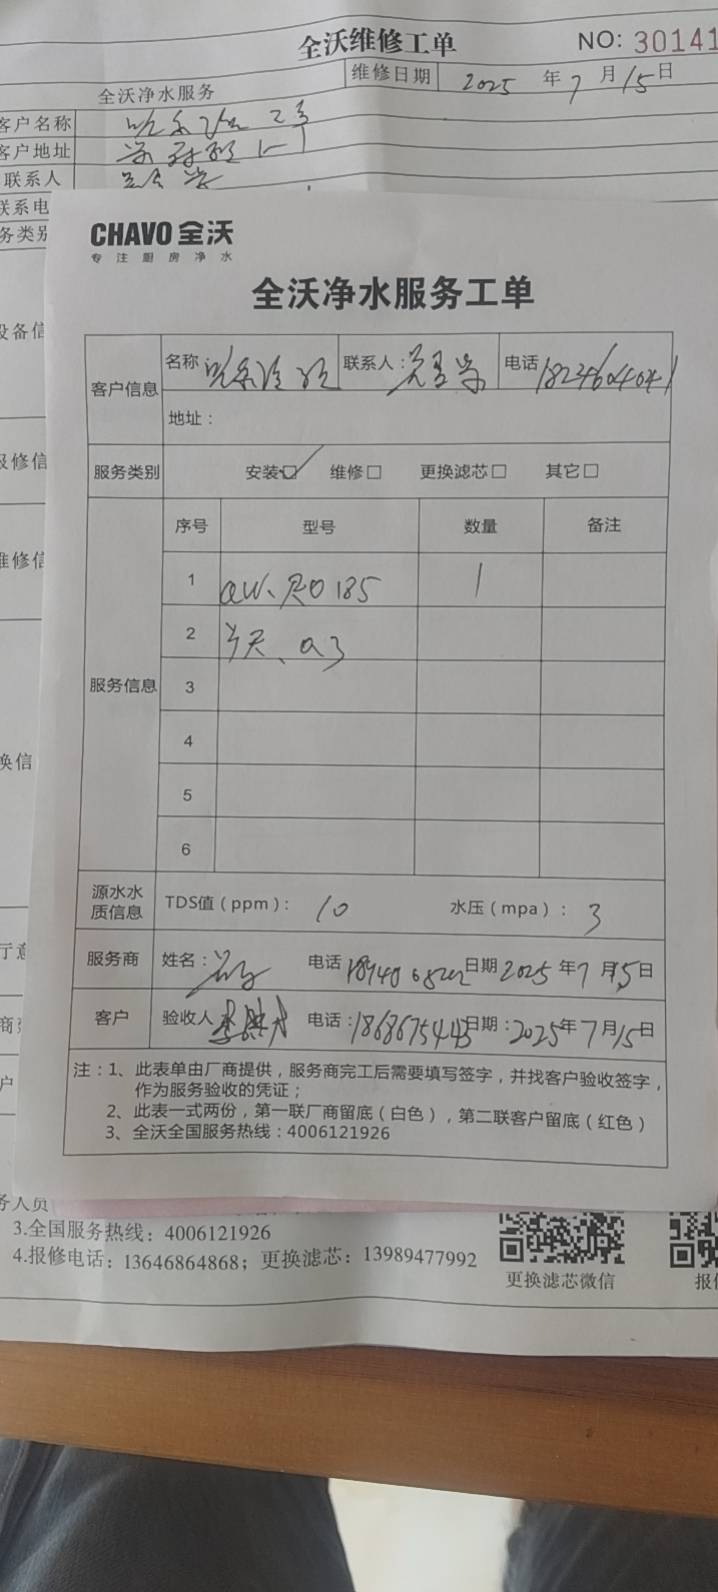 全沃维修工单 NO: 30141
全沃净水服务 维修日期 2025 年 7 月 15 日
客户名称
客户地址
联系人
联系电
务类别
设备信
报修信
维修信
换信
厅意
商
户
CHAVO 全沃
专注厨房净水
全沃净水服务工单
客户信息 名称 联系人: 电话 1824604041
地址:
服务类别 安装☑ 维修□ 更换滤芯□ 其它□
服务信息 序号 型号 数量 备注
1 QW、RO 185 1
2 a3
3
4
5
6
源水水质信息 TDS值(ppm): 10 水压(mpa): 3
服务商 姓名: 电话 日期 2025 年 7 月 15 日
客户 验收人 电话: 18686754443 日期: 2025 年 7 月 15 日
注:1、此表单由厂商提供,服务商完工后需要填写签字,并找客户验收签字,
作为服务验收的凭证;
2、此表一式两份,第一联厂商留底(白色),第二联客户留底(红色)
3、全沃全国服务热线:4006121926
务人员
3.全国服务热线: 4006121926
4.报修电话: 13646864868; 更换滤芯: 13989477992
更换滤芯微信
报